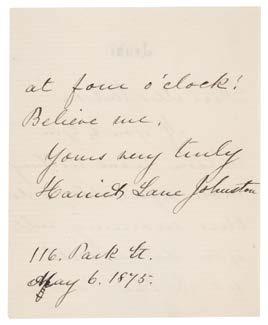 at four o'clock!
Believe me,
Yours very truly
Harriet Lane Johnston
116. Park St.
May 6. 1875.